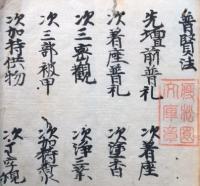 普賢法
先壇前普礼 次着座
次着座普礼 次塗香
次三密観 次浄三業
次三部被甲 次加持香水
次加持供物 次字観